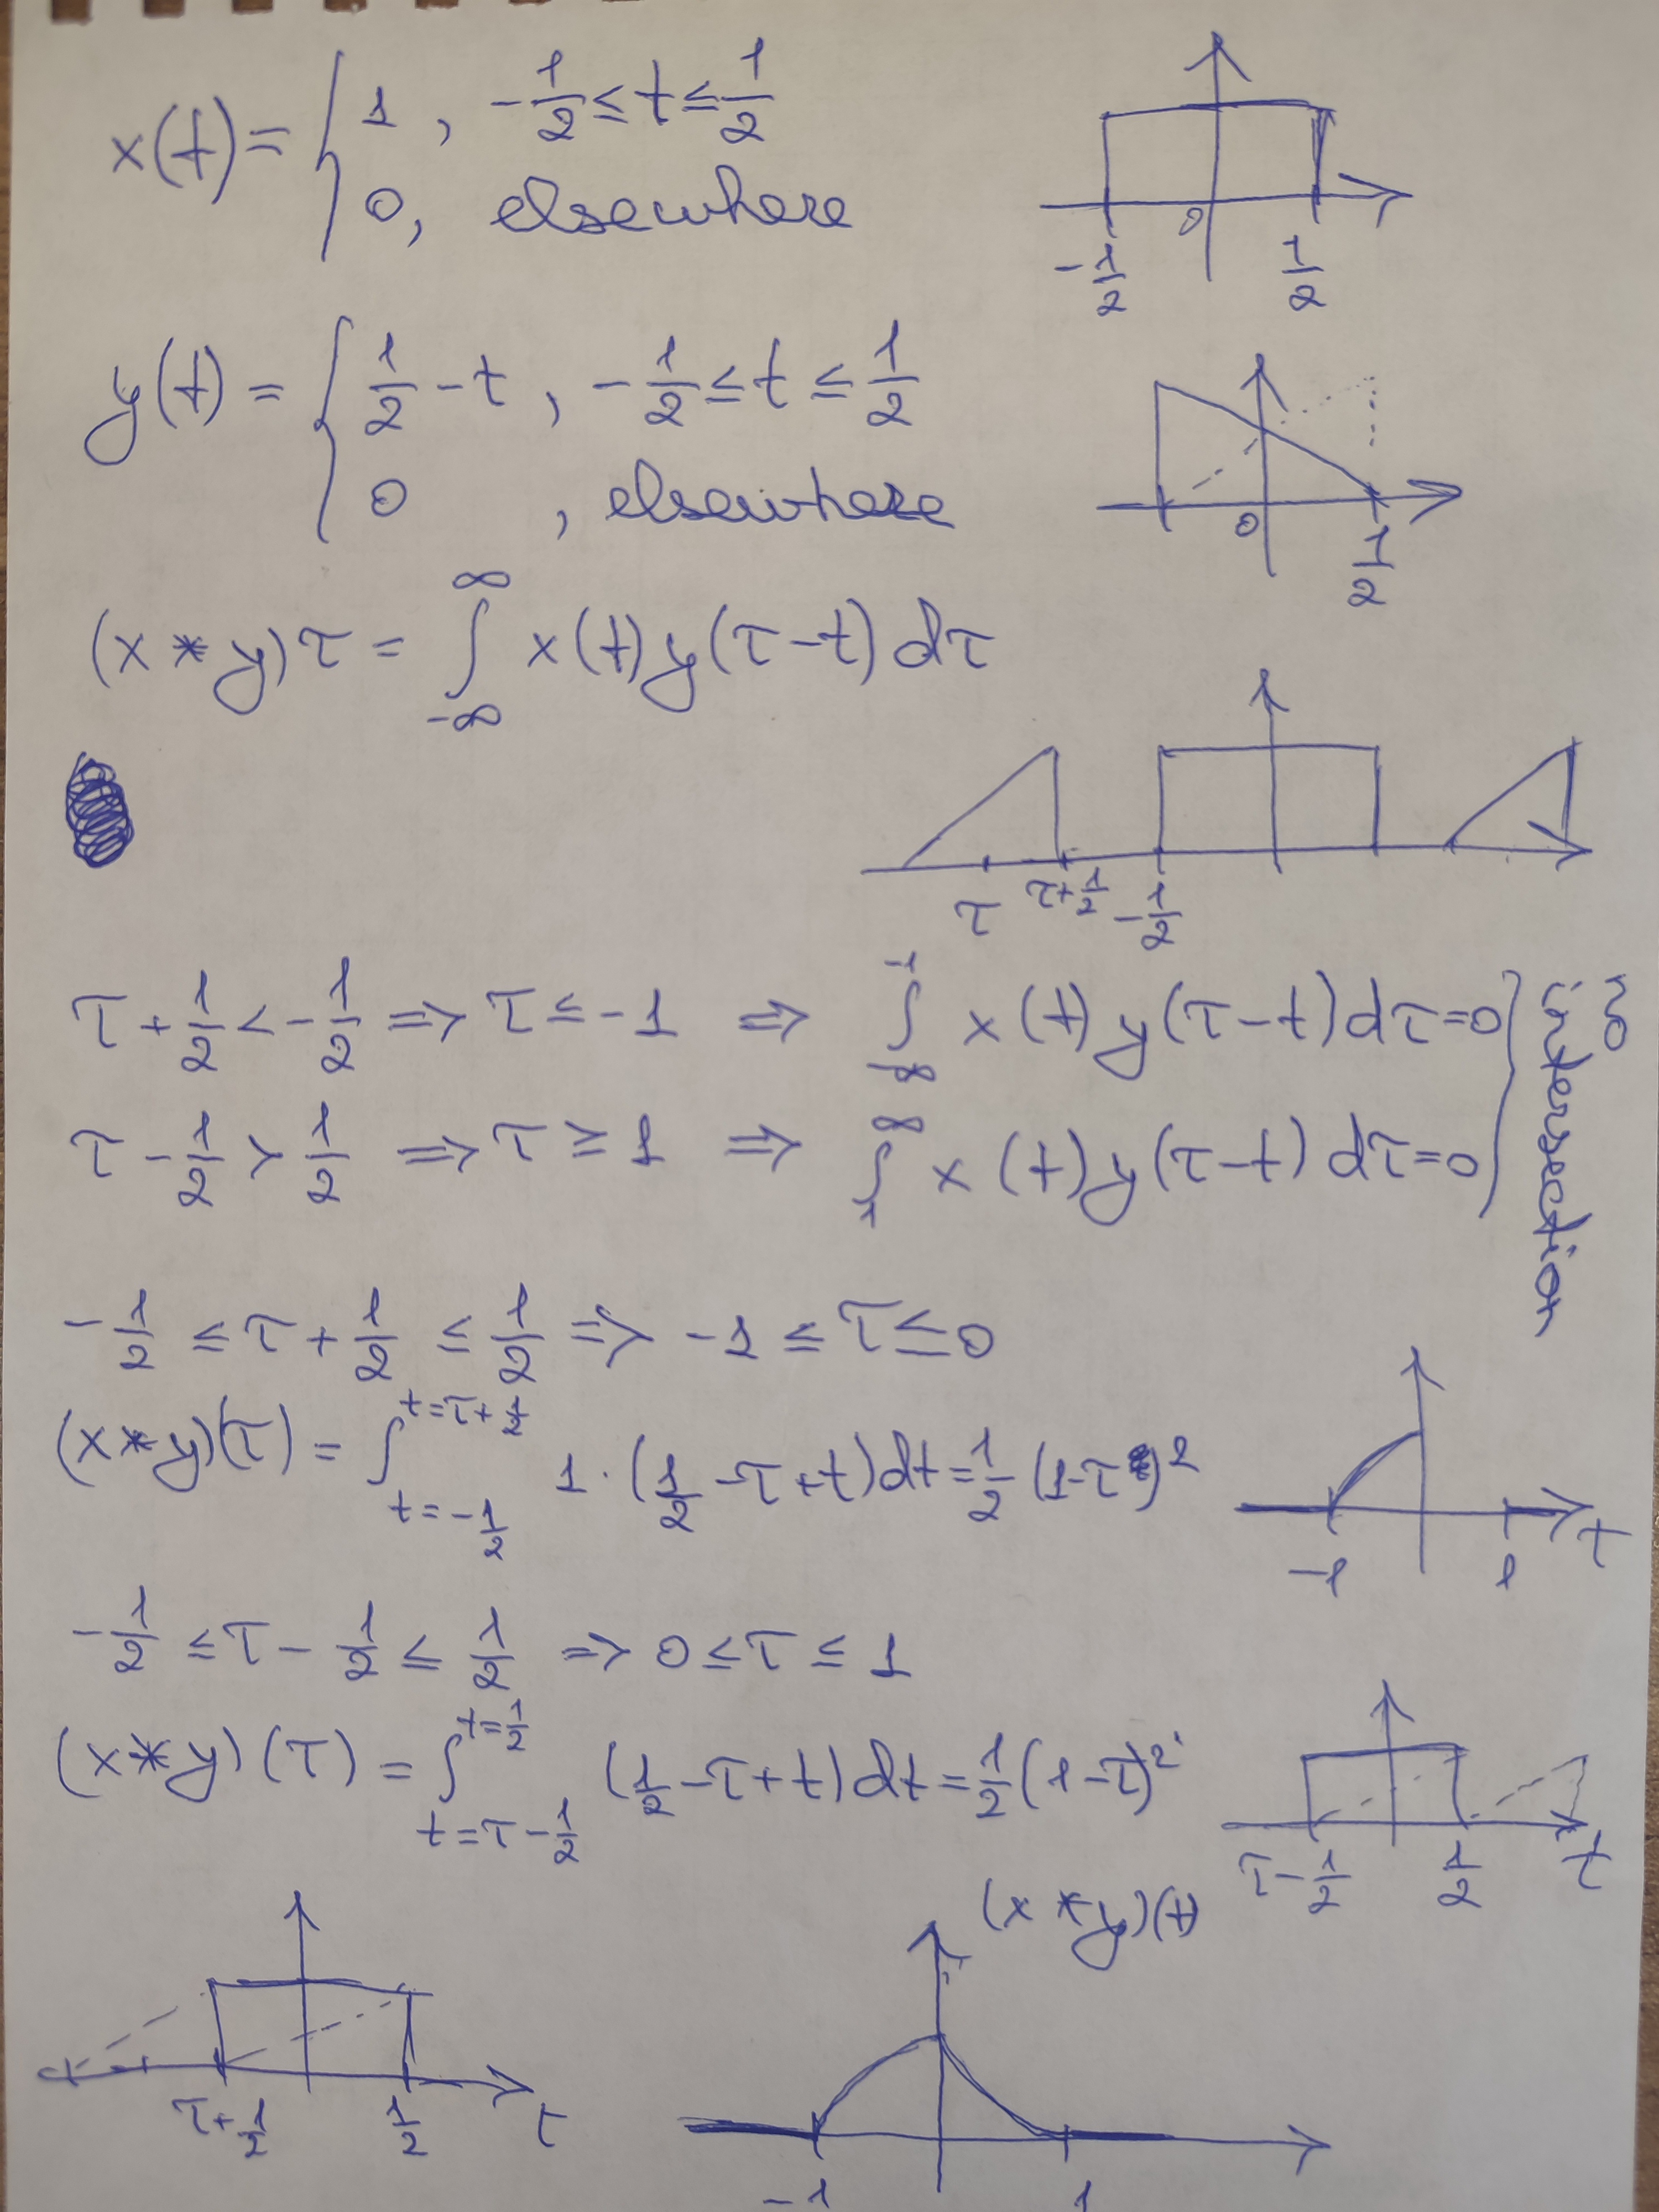 x(t) = { 1, -1/2 ≤ t ≤ 1/2
0, elsewhere
-1/2 0 1/2
y(t) = { 1/2 - t, -1/2 ≤ t ≤ 1/2
0, elsewhere
0 1/2
(x * y) τ = ∫_{-∞}^{∞} x(t) y(τ-t) dτ
τ τ+1/2 -1/2
τ + 1/2 < -1/2 => τ ≤ -1 => ∫_{-∞}^{-1} x(t) y(τ-t) dτ = 0
τ - 1/2 > 1/2 => τ ≥ 1 => ∫_{1}^{∞} x(t) y(τ-t) dτ = 0
no
intersection
-1/2 ≤ τ + 1/2 ≤ 1/2 => -1 ≤ τ ≤ 0
(x * y)(τ) = ∫_{t=-1/2}^{t=τ+1/2} 1 · (1/2 - τ + t) dt = 1/2 (1-τ)^2
-1 1 t
-1/2 ≤ τ - 1/2 ≤ 1/2 => 0 ≤ τ ≤ 1
(x * y)(τ) = ∫_{t=τ-1/2}^{t=1/2} (1/2 - τ + t) dt = 1/2 (1-τ)^2
τ-1/2 1/2 t
(x * y)(t)
τ+1/2 1/2 τ
-1 1